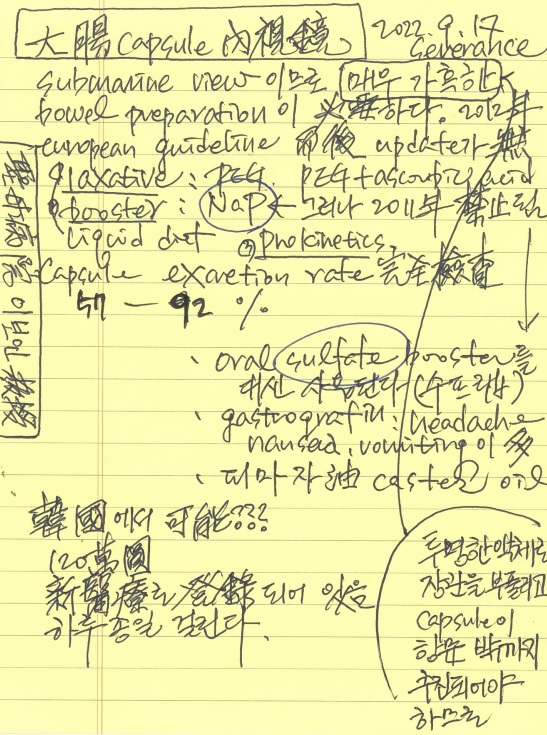 大腸 capsule 內視鏡
2022. 9. 17
Severance
submarine view 이므로 매우 가혹한
bowel preparation이 必要하다. 2012年
european guideline 而後 update가 無
① laxative : PEG. PEG + ascorbic acid
② booster : NaP ← 그러나 2011年 禁止됨
liquid diet ③ prokinetics.
Capsule excretion rate 完全檢査
57 — 92 %
、oral sulfate booster를
대신 사용된다 (수프랩)
、gastrografin : headache
nausea, vomiting이 多
、피마자油 caster oil
韓國에서 可能???
120萬圓
新醫療로 登錄되어 있음
하루 종일 걸린다.
투명한 액체로
장관을 부풀리고
capsule이
항문 밖까지
추진되어야
하므로